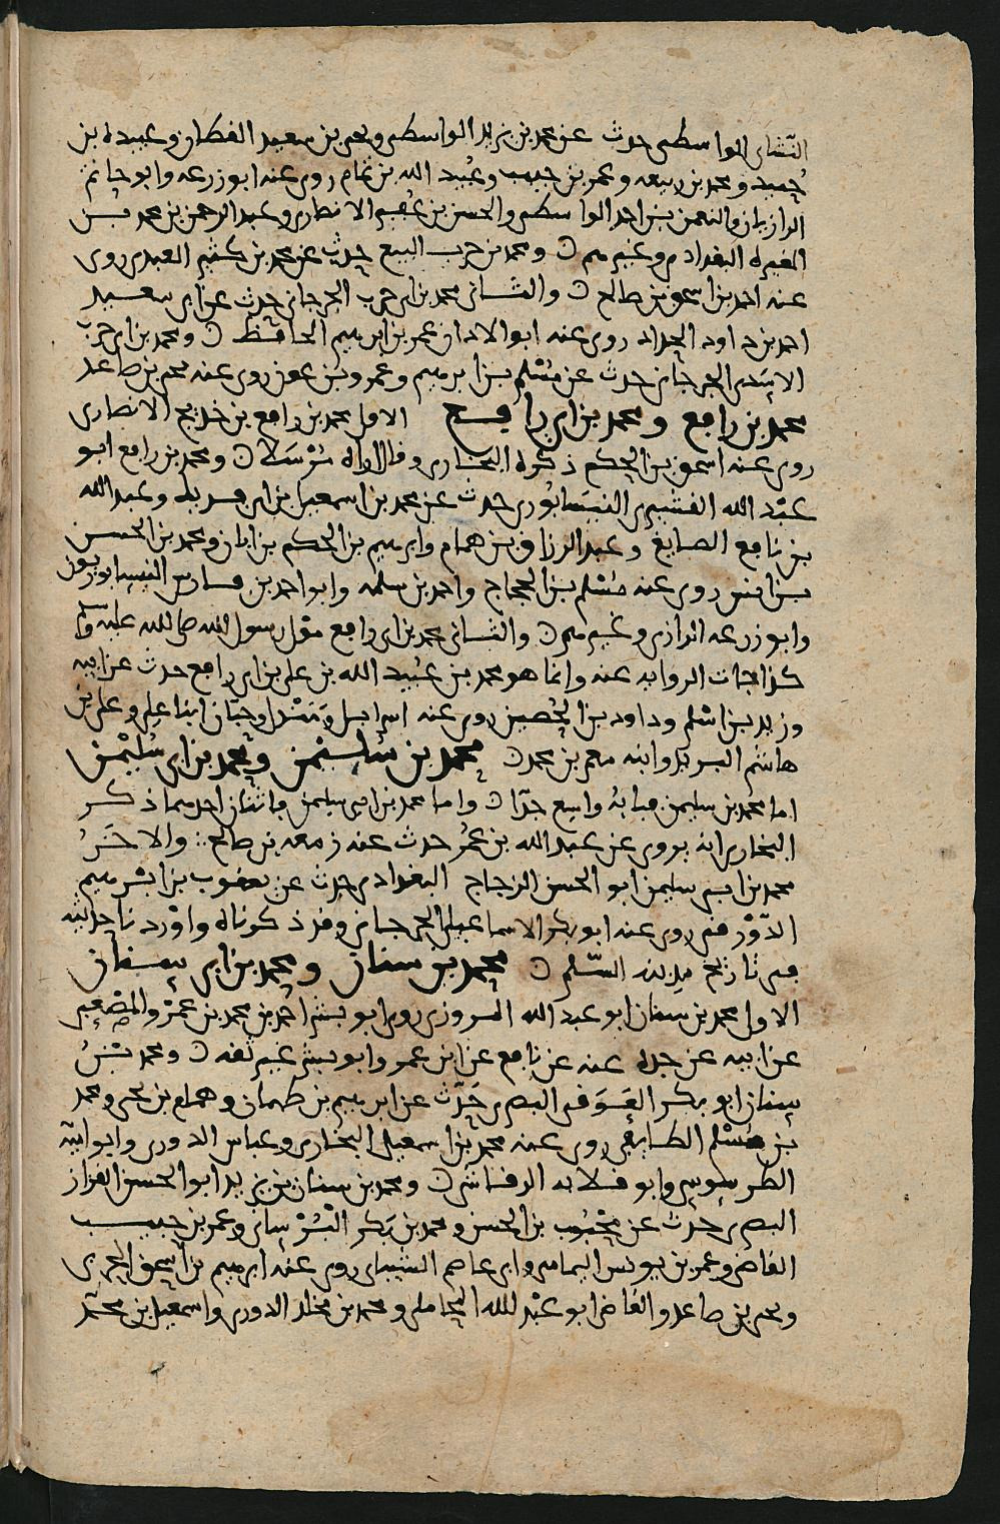 النشاى الواسطى حدث عن محمد بن يزيد الواسطى ويحيى بن سعيد القطان وعبيدة بن
حميد ومحمد بن ربيعه وعمر بن حبيب وعبيد الله بن تمام روى عنه ابو زرعه وابو حاتم
الرازيان والنعمن بن احمد الواسطى والحسن بن عليم الانطاري وعبد الرحمن بن محمد بن
المغيرة البغدادى وغيرهم ن ومحمد بن حرب البيع حدث عن محمد بن كثير العبدى روى
عنه احمد بن اسحق بن صالح ن والثانى محمد بن ابى حرب الجرجانى حدث عن ابى سعيد
احمد بن داود الحداد روى عنه ابو الاذان عمر بن ابرهيم الحافظ ن ومحمد بن ابى حرب
الاسدى الجرجانى حدث عن مسلم بن ابرهيم وعمرو بن عون روى عنه يحيى بن صاعد
محمد بن رافع ومحمد بن ابى رافع الاول محمد بن رافع بن خديج الانصارى
روى عنه اسحق بن الحكم ذكره البخارى وقال اراه مرسلا ن ومحمد بن رافع ابو
عبد الله القشيرى النيسابورى حدث عن محمد بن اسمعيل بن ابى فديك وعبد الله
بن نافع الصايغ وعبد الرزاق بن همام وابرهيم بن الحكم بن ابان ومحمد بن الحسن
بن اتش روى عنه مسلم بن الحجاج واحمد بن سلمه وابو احمد بن فارس النيسابوريون
وابو زرعه الرازى وغيرهم ن والثانى محمد بن ابى رافع مولى رسول الله صلى الله عليه وسلم
كذا جات الروايه عنه وانما هو محمد بن عبيد الله بن على بن ابى رافع حدث عن ابيه
وزيد بن اسلم وداود بن الحصين روى عنه اسرايل ومندل وحبان ابنا على وعلى بن
هاشم البريد وابنه معمر بن محمد ن محمد بن سليمن ومحمد بن ابى سليمن
اما محمد بن سليمن فبابه واسع جدا ن واما محمد بن ابى سليمن فاثنان احدهما ذكر
البخارى انه يروى عن عبد الله بن عمر حدث عنه زمعه بن صالح والاخر
محمد بن ابى سليمن ابو الحسن الزجاج البغدادى حدث عن يعقوب بن ابرهيم
الدورقى روى عنه ابو بكر الاسماعيلى الجرجانى وقد ذكرناه واوردنا حديثه
فى تاريخ مدينه السلم ن محمد بن سنان ومحمد بن ابى سنان
الاول محمد بن سنان ابو عبد الله المروزى روى ابو بشر احمد بن محمد بن عمرو المصعبى
عن ابيه عن جده عنه عن نافع عن ابن عمر وابو بشر غير ثقه ن ومحمد بن
سنان ابو بكر العوقى البصرى حدث عن ابرهيم بن طهمان وهمام بن يحيى ومحمد
بن مسلم الطايفى روى عنه محمد بن اسمعيل البخارى وعباس الدورى وابو اميه
الطرسوسى وابو قلابه الرقاشى ن ومحمد بن سنان بن يزيد ابو الحسن القزاز
البصرى حدث عن محبوب بن الحسن ومحمد بن بكر البرسانى وعمر بن حبيب
القاضى وعمر بن يونس اليمامى وابى عاصم الشيبانى روى عنه ابرهيم بن اسحق الحربى
ويحيى بن صاعد والقاضى ابو عبد الله المحاملى ومحمد بن مخلد الدورى واسمعيل بن محمد